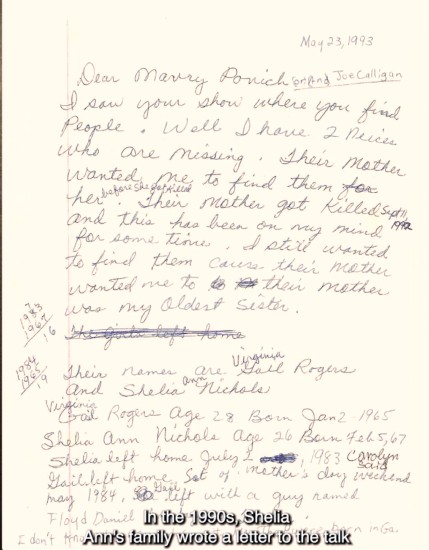 May 23, 1993
Dear Maury Povich on And Joe Calligan
I saw your show where you find
People. Well I have 2 Neices
who are missing. Their Mother
wanted me to find them for
her before she got killed. Their Mother got Killed Sept 11, 1992
and this has been on my mind
for some time. I still wanted
to find them cause their Mother
wanted me to their Mother
was my Oldest Sister.
The girls left home
1983
1967
16
1984
1965
19
Their names are Virginia Gail Rogers
And Shelia Ann Nichols
Virginia Gail Rogers Age 28 Born Jan 2 1965
Shelia Ann Nichols Age 26 Born Feb 5, 67
Shelia left home July 2, 1983 Carolyn said
Gail left home Sat of mother's day weekend
may 1984, Gail left with a guy named
Floyd Daniell
born in Ga.
I don't
In the 1990s, Shelia
Ann's family wrote a letter to the talk